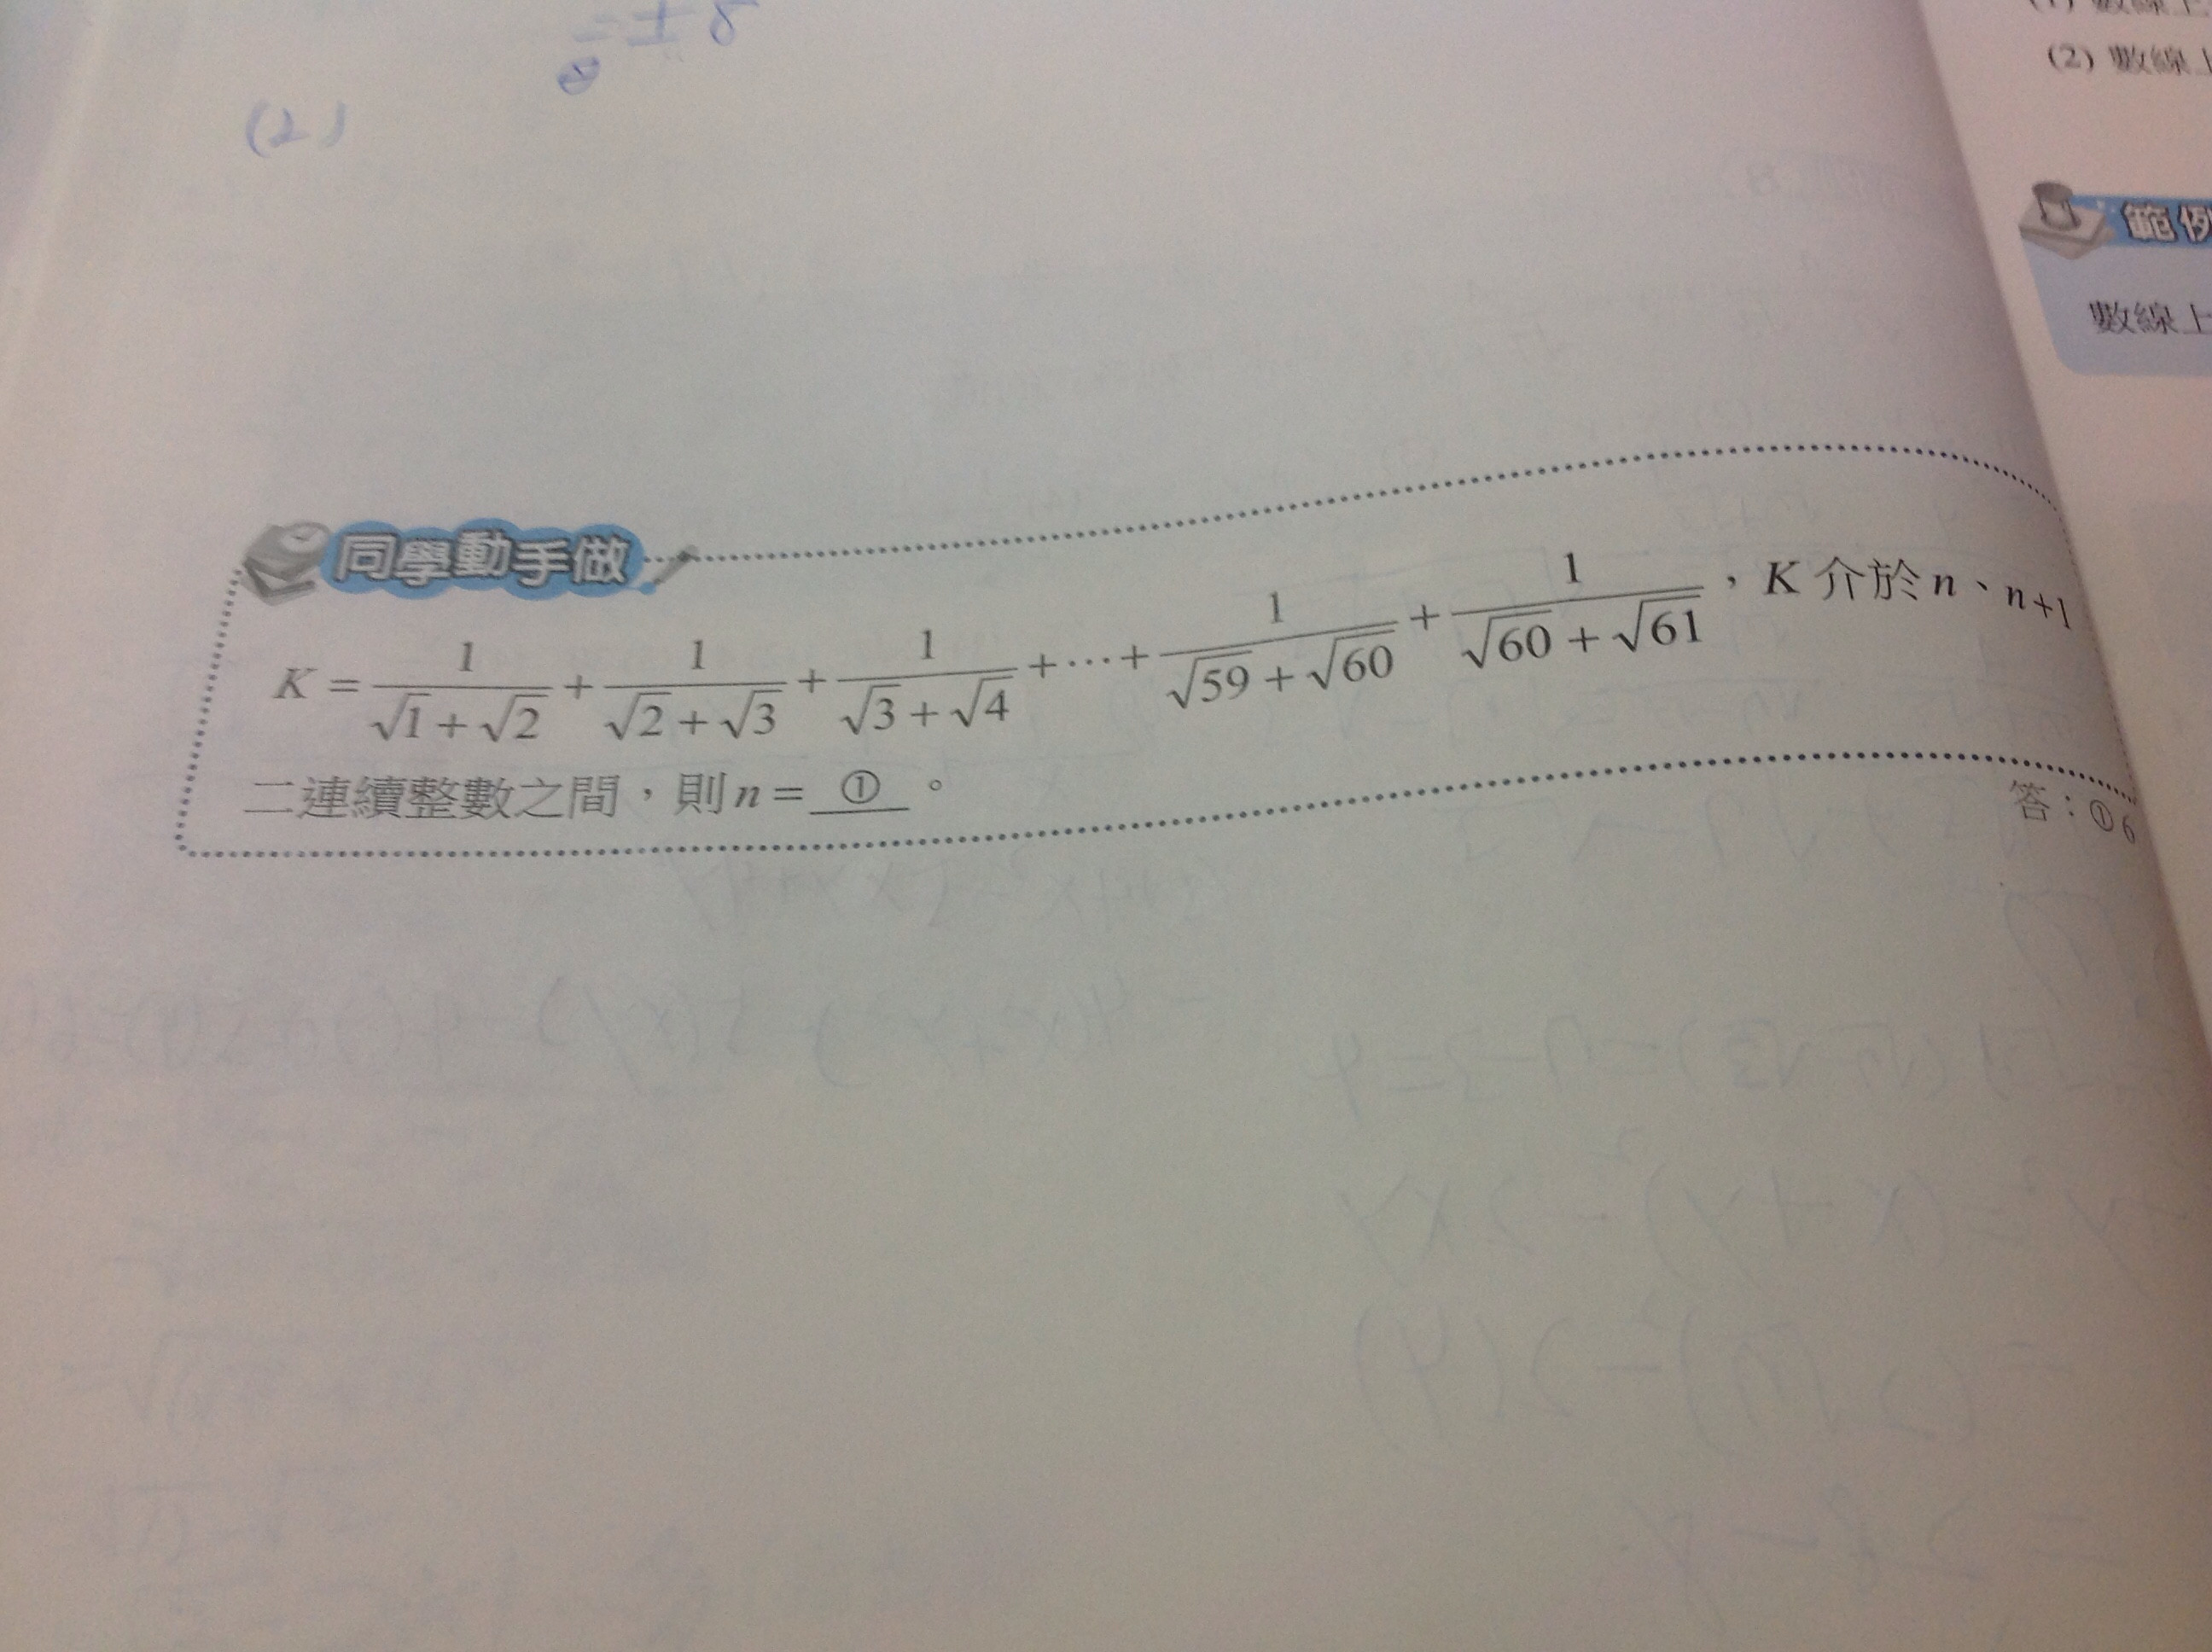 = ± 8
(2)
(2) 數線上
範例
數線上
同學動手做
K = 1/(√1 + √2) + 1/(√2 + √3) + 1/(√3 + √4) + ⋯ + 1/(√59 + √60) + 1/(√60 + √61) ，K 介於 n、n+1
二連續整數之間，則 n = ① 。
答：① 6